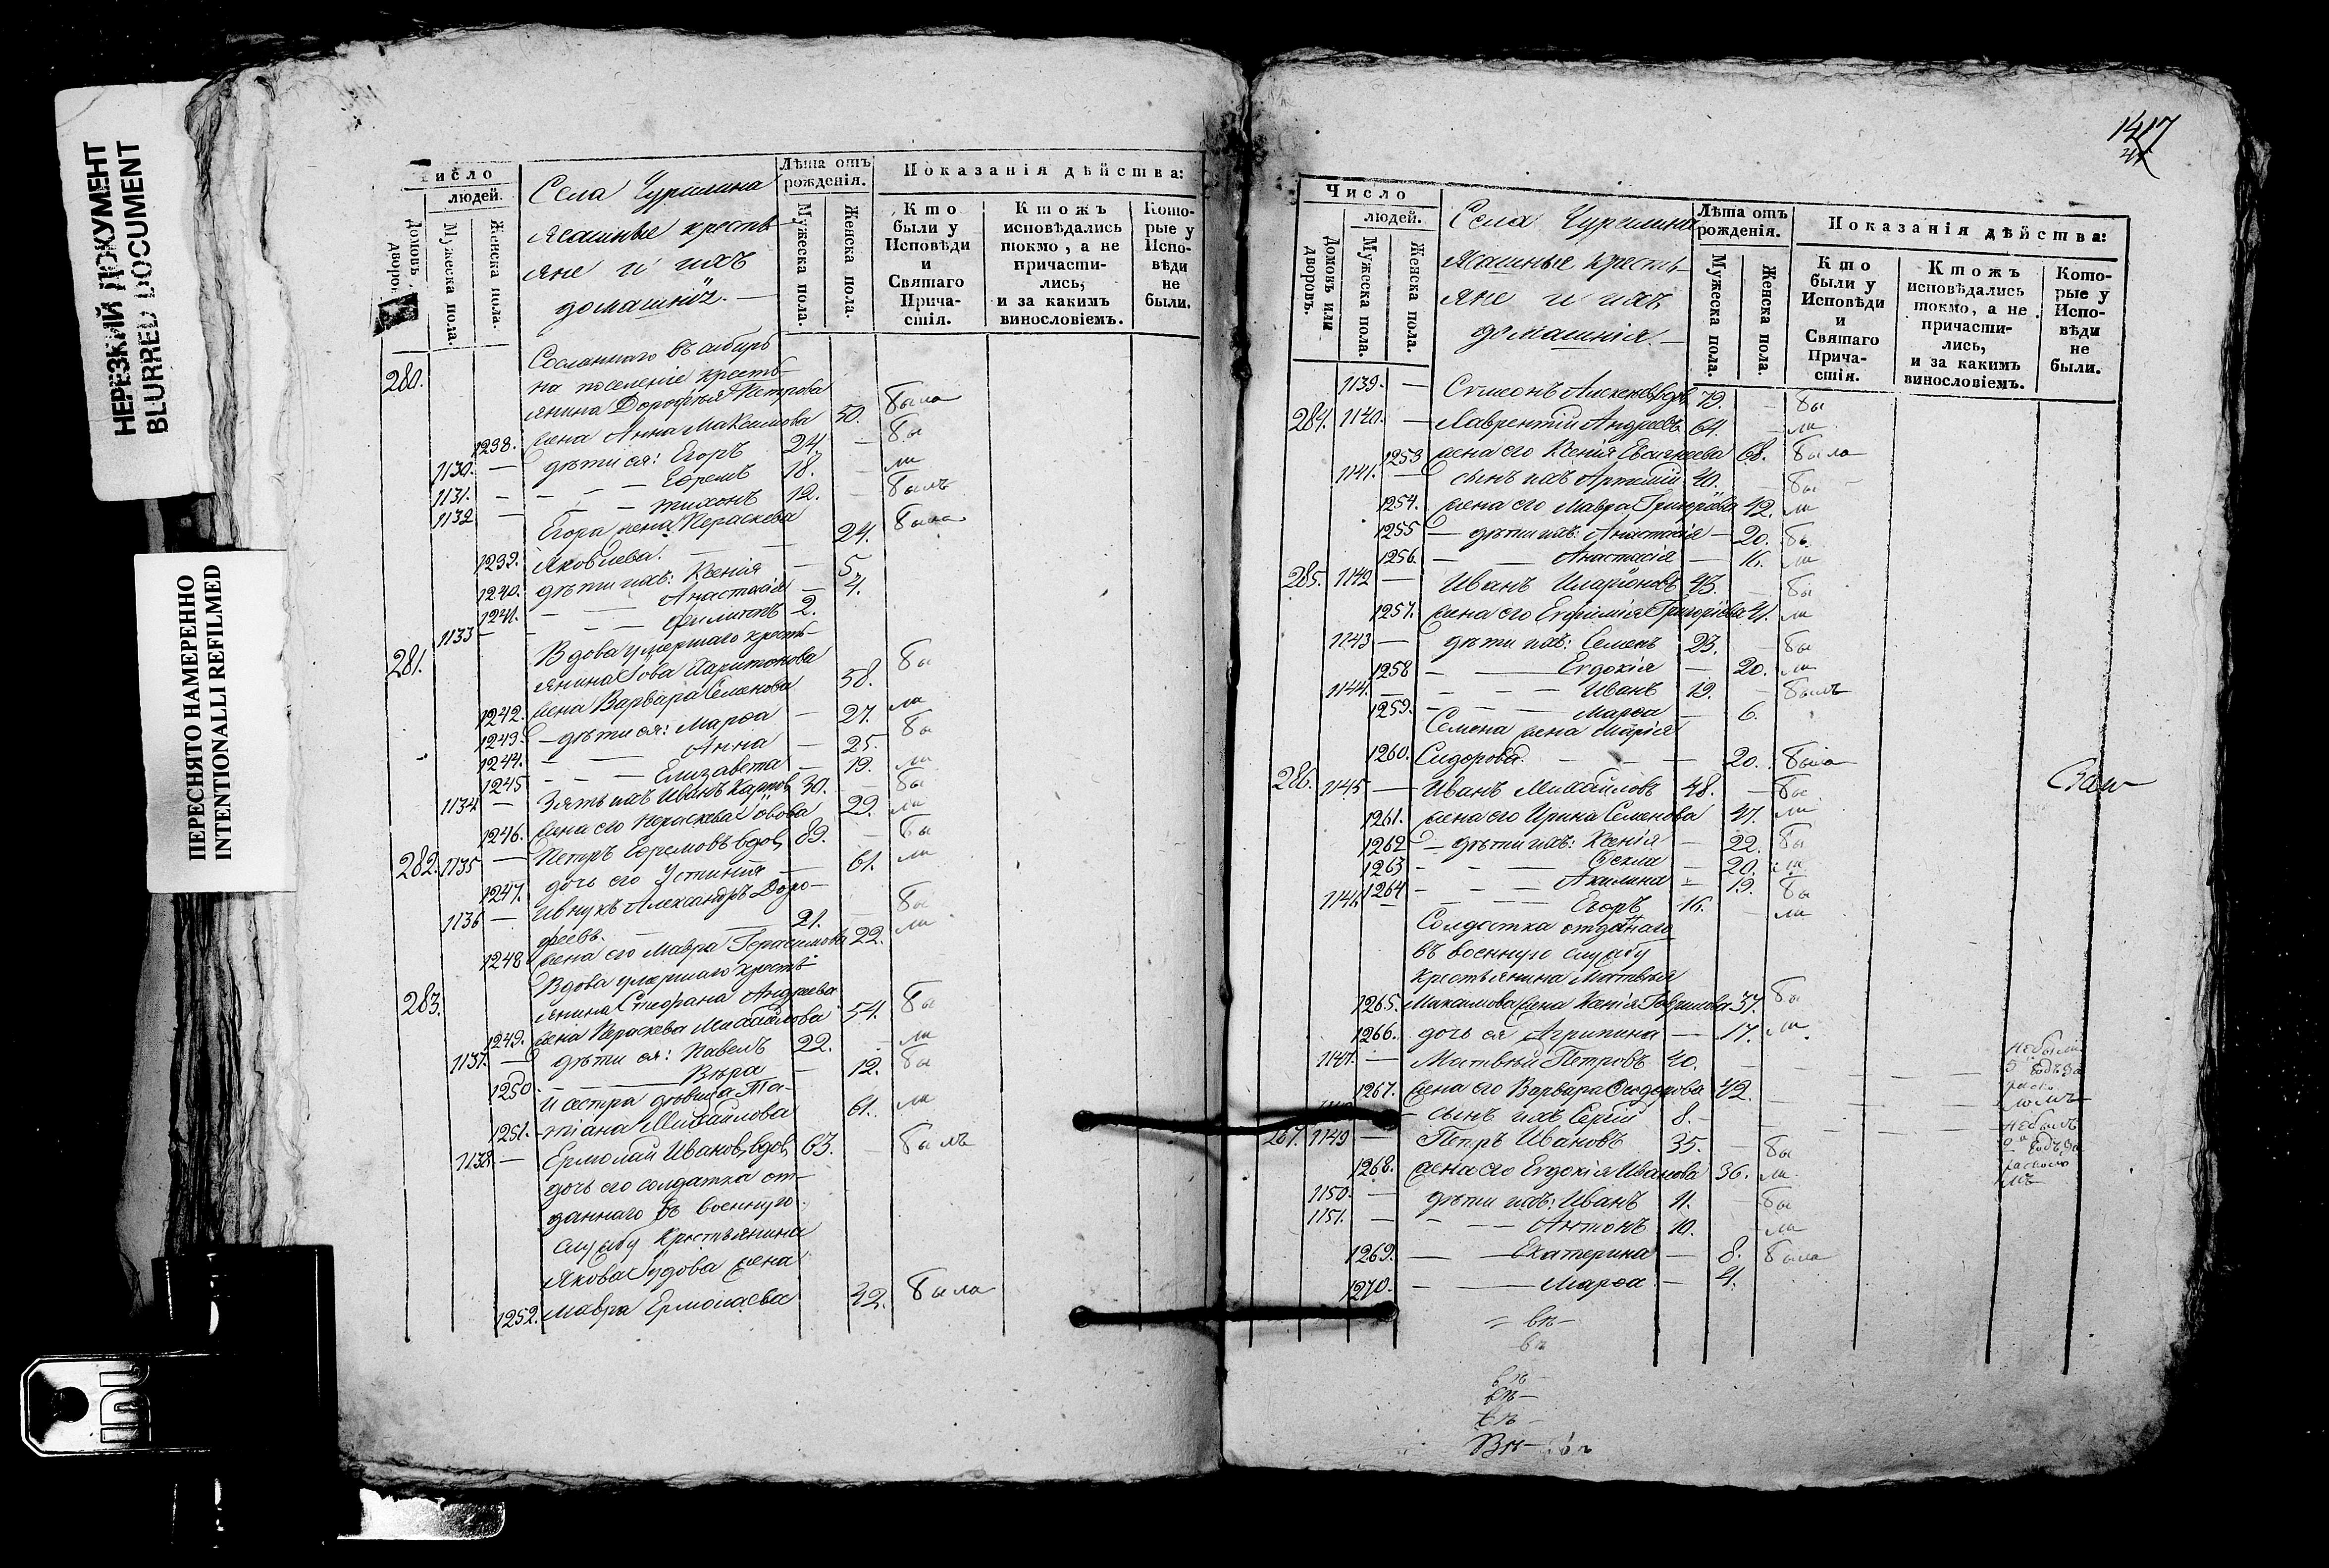 НЕРЕЗКИЙ ДОКУМЕНТ
BLURRED DOCUMENT
ПЕРЕСНЯТО НАМЕРЕННО
INTENTIONALLI REFILMED
Число
людей.
Домовъ
дворов
Мужеска пола.
Женска пола.
Села Чурилина
Ясашные кресть-
яне и ихъ
домашнія. —
Лѣта отъ рожденія.
Мужеска пола.
Женска пола.
Показанія дѣйства:
Кто были у Исповѣди и Святаго Причастія.
Ктожъ исповѣдались токмо, а не причастились, и за какимъ винословіемъ.
Которые у Исповѣди не были.
280. Сосланнаго въ сибирь
на поселеніе кресть-
янина Дорофея Петрова
1238. жена Анна Максимова 50. Была
1130. — дѣти ея: Егоръ 24. — Бы
1131. — — — Ефремъ 18. — ли
1132 — — — Тихонъ 12. — Былъ
Егора жена Пераскева
1239. Яковлева. — — 24. Была
1240. дѣти ихъ: Ксенія — 5.
1241. — — Анастасія — 4.
1133 — — — Филипъ 2.
281. Вдова умершаго кресть-
янина Іова Харитонова
1242. жена Варвара Семенова 58. Бы
1243. — дѣти ея: Марфа — 27. ли
1244. — — Анна — 25. Бы
1245 — — — Елизавета — 19. ли
1134 — Зять ихъ Иванъ Карпов 30. — Бы
1246. жена его Пераскева Іовова 29. ли
282. 1135 — Петръ Ефремовъ вдов 89. — Бы
1247. дочь его Устинія — 61. ли
1136 — Ивнукъ Александръ Доро-
феевъ. — — 21. — Бы
1248 жена его Мавра Герасимова 22. ли
283. Вдова умершаго кресть-
янина Стефана Андреева
1249. жена Пераскева Михайлова 54. Бы
1137. — дѣти ея: Павелъ 22. — ли
1250 — — Вѣра — 12. Бы
и сестра дѣвица Та-
1251. тіана Михайлова 61. ли
1138. — Ермолай Иванов, вдов 63. — Былъ
дочь его солдатка от-
даннаго въ военную
службу крестьянина
Якова Іудова жена
1252. Мавра Ермолаева 42. Была
1417
Число
людей.
Домовъ или дворовъ.
Мужеска пола.
Женска пола.
Села Чурилина
Ясашные кресть-
яне и ихъ
домашнія —
Лѣта отъ рожденія.
Мужеска пола.
Женска пола.
Показанія дѣйства:
Кто были у Исповѣди и Святаго Причастія.
Ктожъ исповѣдались токмо, а не причастились, и за какимъ винословіемъ.
Которые у Исповѣди не были.
1139. — Симеонъ Алексѣевъ вдов 79. — Бы
284. 1140. — Лаврентій Андреевъ 64. — ли
1253 жена его Ксенія Евсигнеева 68. Была
1141. — сынъ ихъ Артемій 40. — Бы
1254. жена его Мавра Григорьева 42. ли
1255 — дѣти ихъ: Анастасія — 20. Бы
1256. — — Анастасія — 16. ли
285. 1142 — Иванъ Иларіоновъ 43. — Бы
1257. жена его Евфимія Григорьева 41. ли
1143 — дѣти ихъ: Семенъ 23. — Бы
1258 — — Евдокія — 20. ли
1144. — — — — Иванъ 19. — Былъ
1259. — — — Марфа — 6.
Семена жена Марія
1260. Сидорова. — — — 20. Была
286. 1145 — Иванъ Михайловъ 48. — Бы
1261. жена его Ирина Семенова 47. ли
1262 — дѣти ихъ: Ксенія — 22. Бы
1263 — — — Фекла — 20. ли
1264 — — — Акилина — 19. Бы
1146. — — — — Егоръ 16. — ли
Солдатка отданнаго
въ военную службу
крестьянина Матвѣя
1265. Максимова жена Ксенія Гаврилова 37. Бы
1266. дочь ея Агрипина — 17. ли
1147. — Матвѣй Петровъ 40. — Небыли
1267. жена его Варвара Сидорова 42.
— сынъ ихъ Сергій 8. — Небылъ
287. 1149 — Петръ Ивановъ 35. — Бы
1268. жена его Евдокія Иванова 36. ли
1150. — дѣти ихъ: Иванъ 11. — Бы
1151. — — — Антонъ 10. — ли
1269. — — Екатерина — 8. Была
1270. — — Марфа — 4.